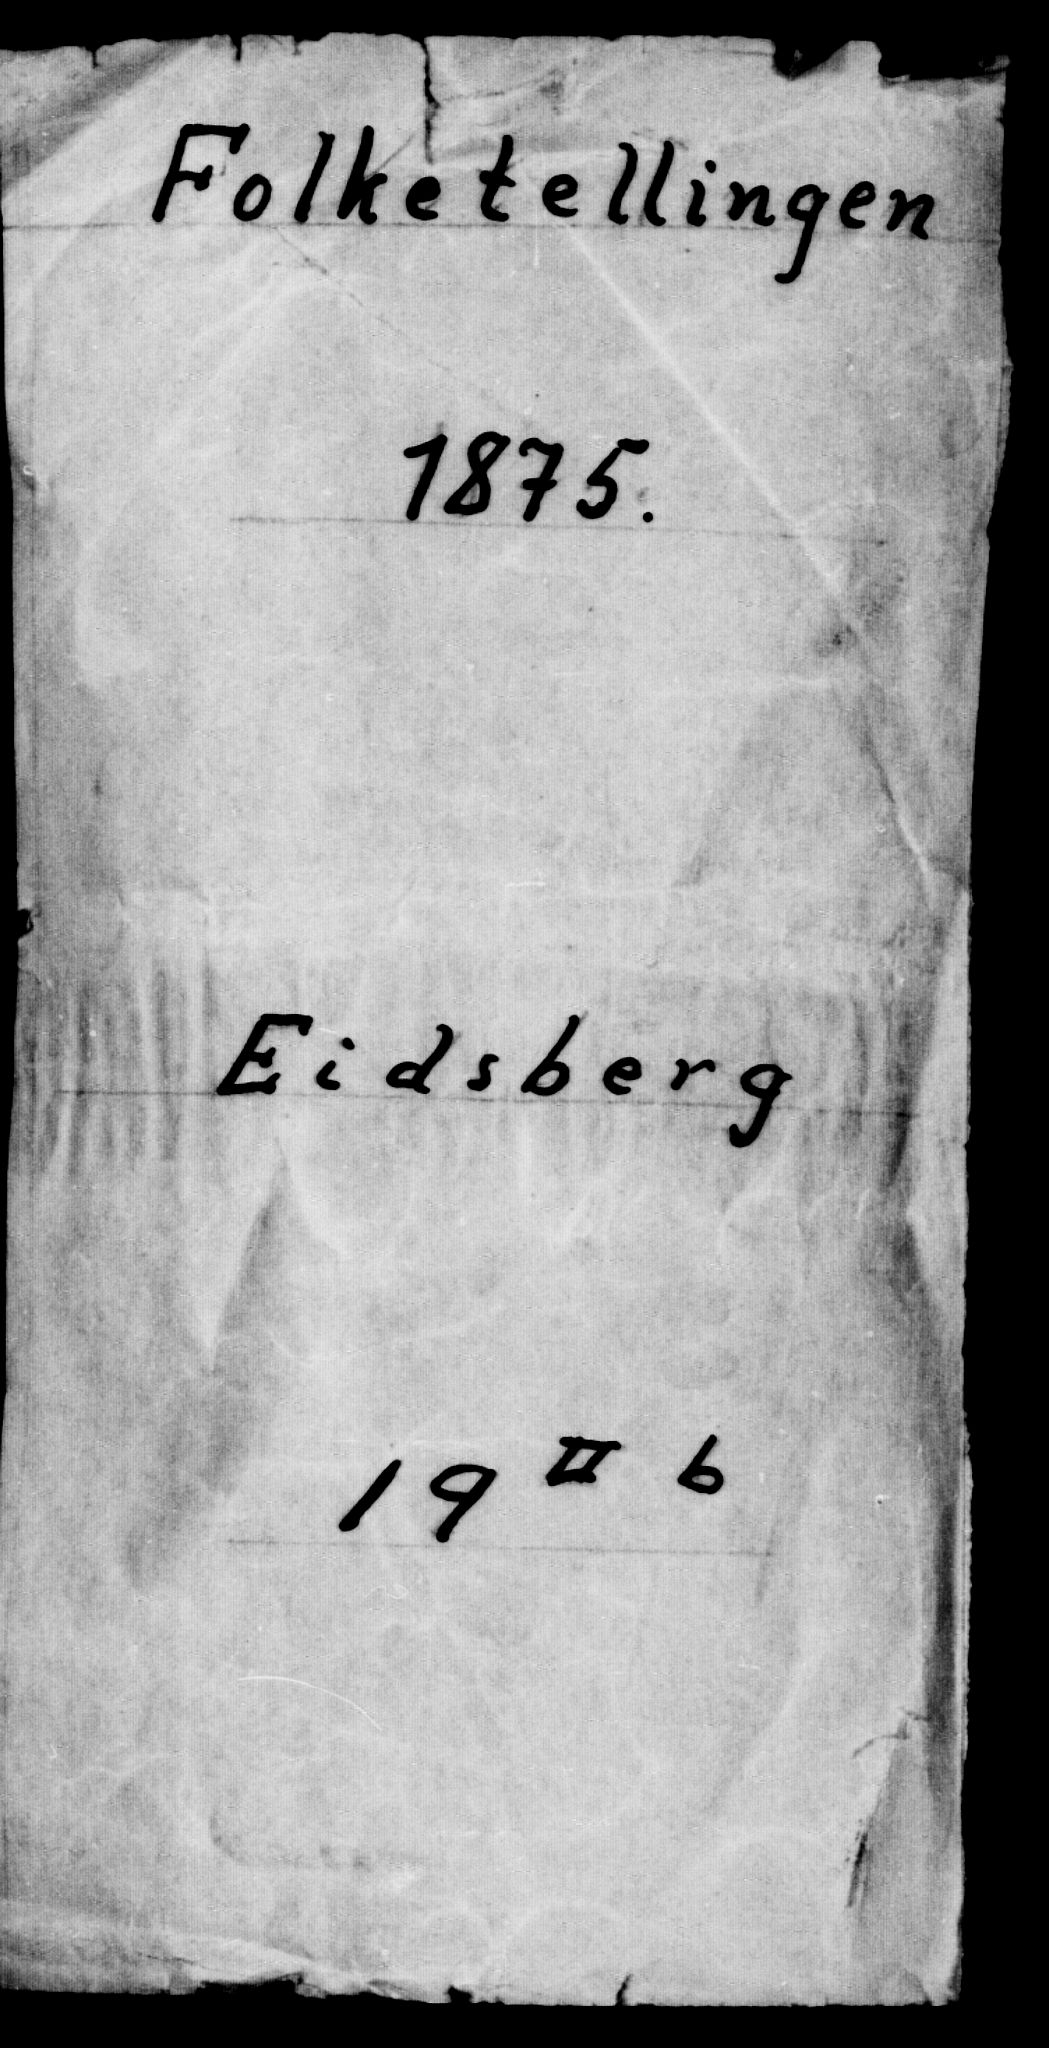 Folketellingen
1875.
Eidsberg
19 II b